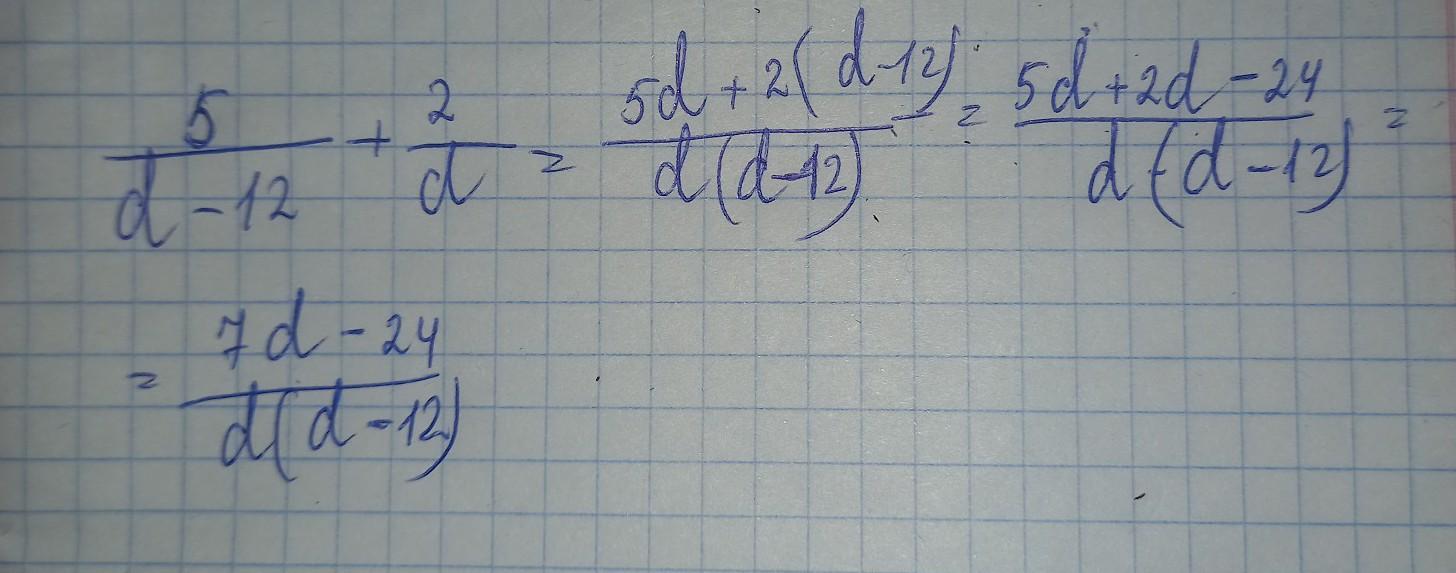 5/(d-12) + 2/d = (5d+2(d-12))/(d(d-12)) = (5d+2d-24)/(d(d-12)) =
= (7d-24)/(d(d-12))